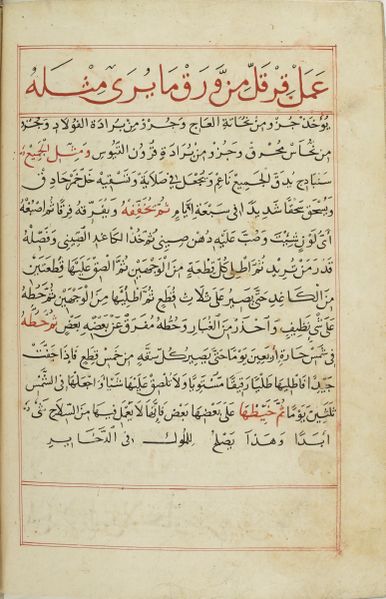 عمل قرقل من ورق ما يرى مثله
يؤخذ جزو من نحاتة العاج وجزو من برادة الفولاد وجزو
من نحاس محروق وجزو من برادة قرون التيوس ومثل الجميع
سنباذج يدق الجميع ناعم ويجعل في صلاية وتسقيه خل خمر حاذق
ويسحق سحقا شديدا الى سبعة ايام ثم تجففه ويفرقه فرقا ثم اصبغه
اي لون شيت وصب عليه دهن صيني ثم خذ الكاغد الصيني وفصله
قدر من تريد ثم اطل كل قطعة من الوجهين ثم الصق عليها قطعتين
من الكاغد حتى يصير على ثلاث قطع ثم اطليها من الوجهين ثم حطه
على شي نظيف واحذر من الغبار وحطه مفرق عن بعضه بعض ثم حطه
في شمس حارة اربعين يوما حتى يصير كل سقه من خمس قطع فاذا جفت
جيدا فاطليها طليا رقيقا مستويا ولا تلصق عليها شيا واجعلها في الشمس
ثلثين يوما ثم خيطها على بعضها بعض فانها لا يعمل فيها من السلاح شي
ابدا وهذا يصلح للملوك في الذخاير